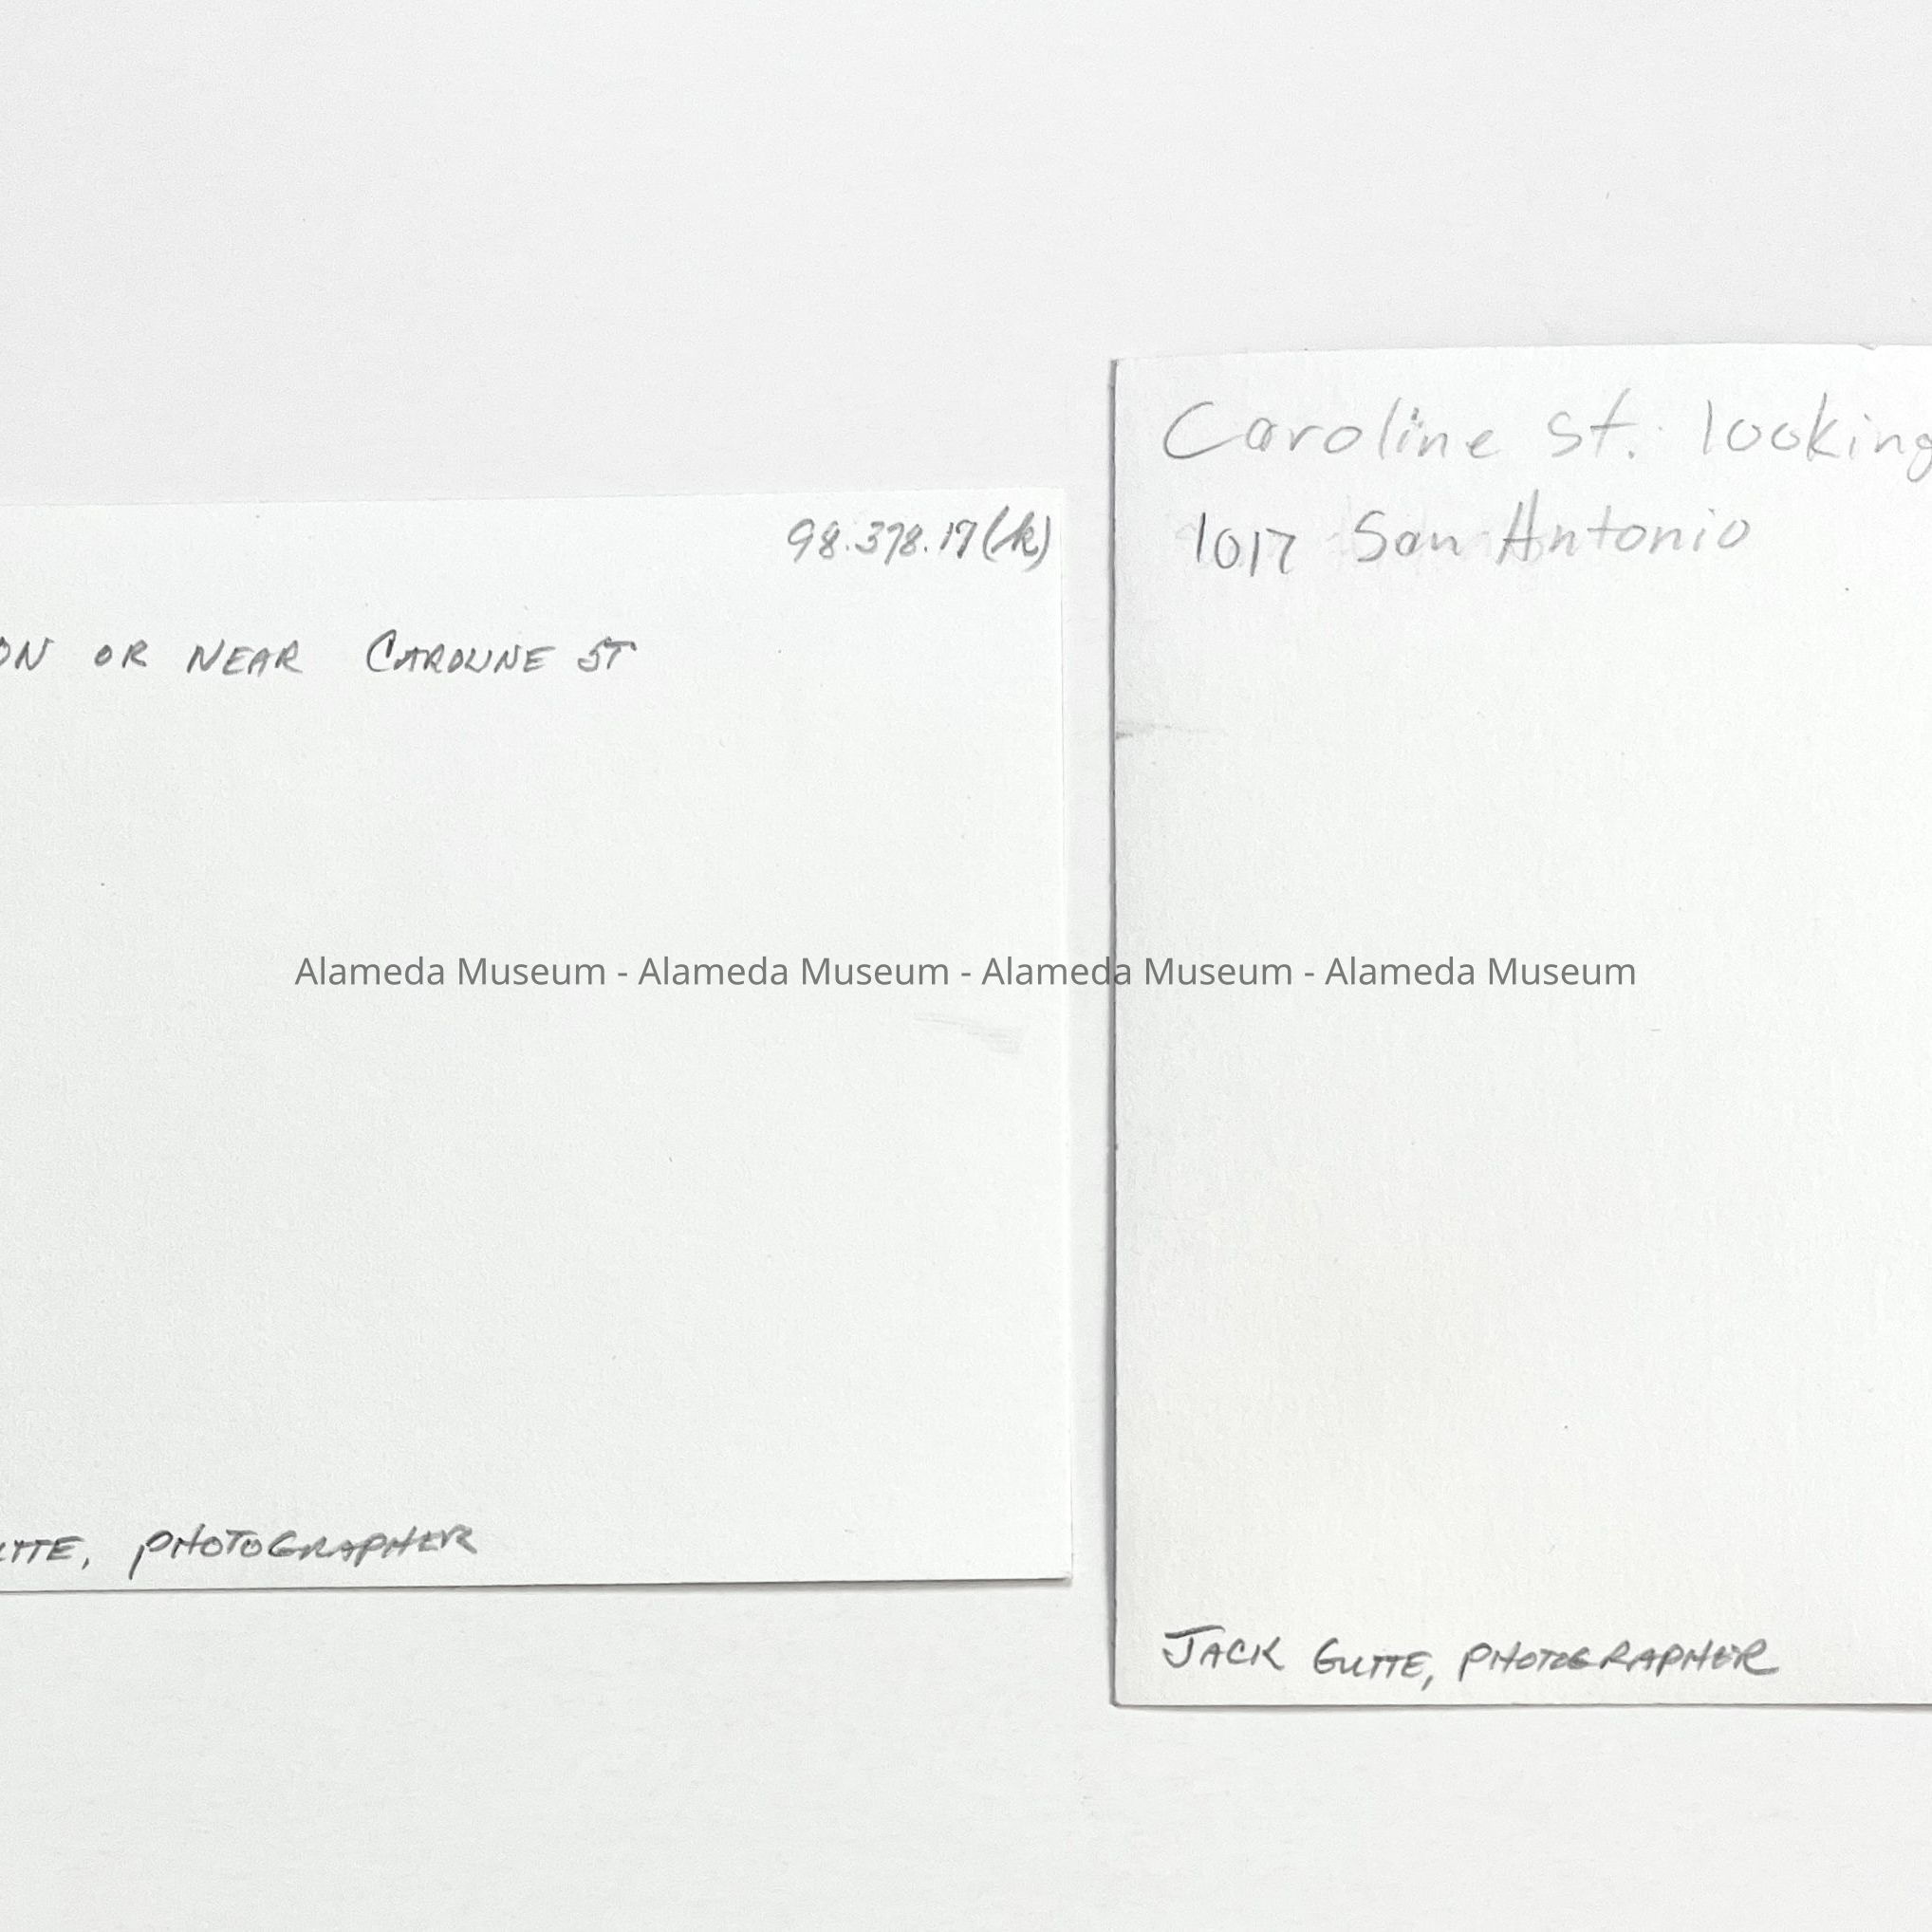 98.378.17(k)
ON OR NEAR CAROLINE ST
PHOTOGRAPHER
Caroline st. looking
1017 San Antonio
Alameda Museum - Alameda Museum - Alameda Museum - Alameda Museum
JACK GUTTE, PHOTOGRAPHER